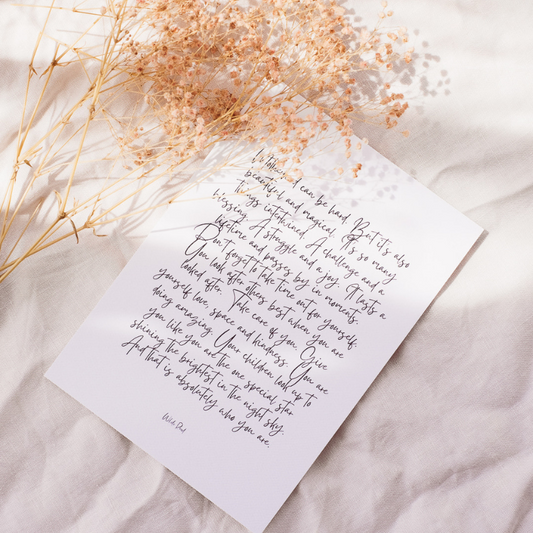 Motherhood can be hard. But it's also
beautiful and magical. It's so many
things intertwined. A challenge and a
blessing. A struggle and a joy. It lasts a
lifetime and passes by in moments.
Don't forget to take time out for yourself.
You look after others best when you are
looked after. Take care of you. Give
yourself love, space and kindness. You are
doing amazing. Your children look up to
you like you are the one special star
shining the brightest in the night sky.
And that is absolutely who you are.